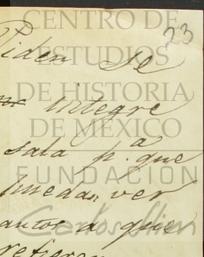 23
Piden se
integre
sala p.ª que
puedan ver
autos a que
refieren
CENTRO DE
ESTUDIOS
DE HISTORIA
DE MÉXICO
FUNDACIÓN
Carlos Slim